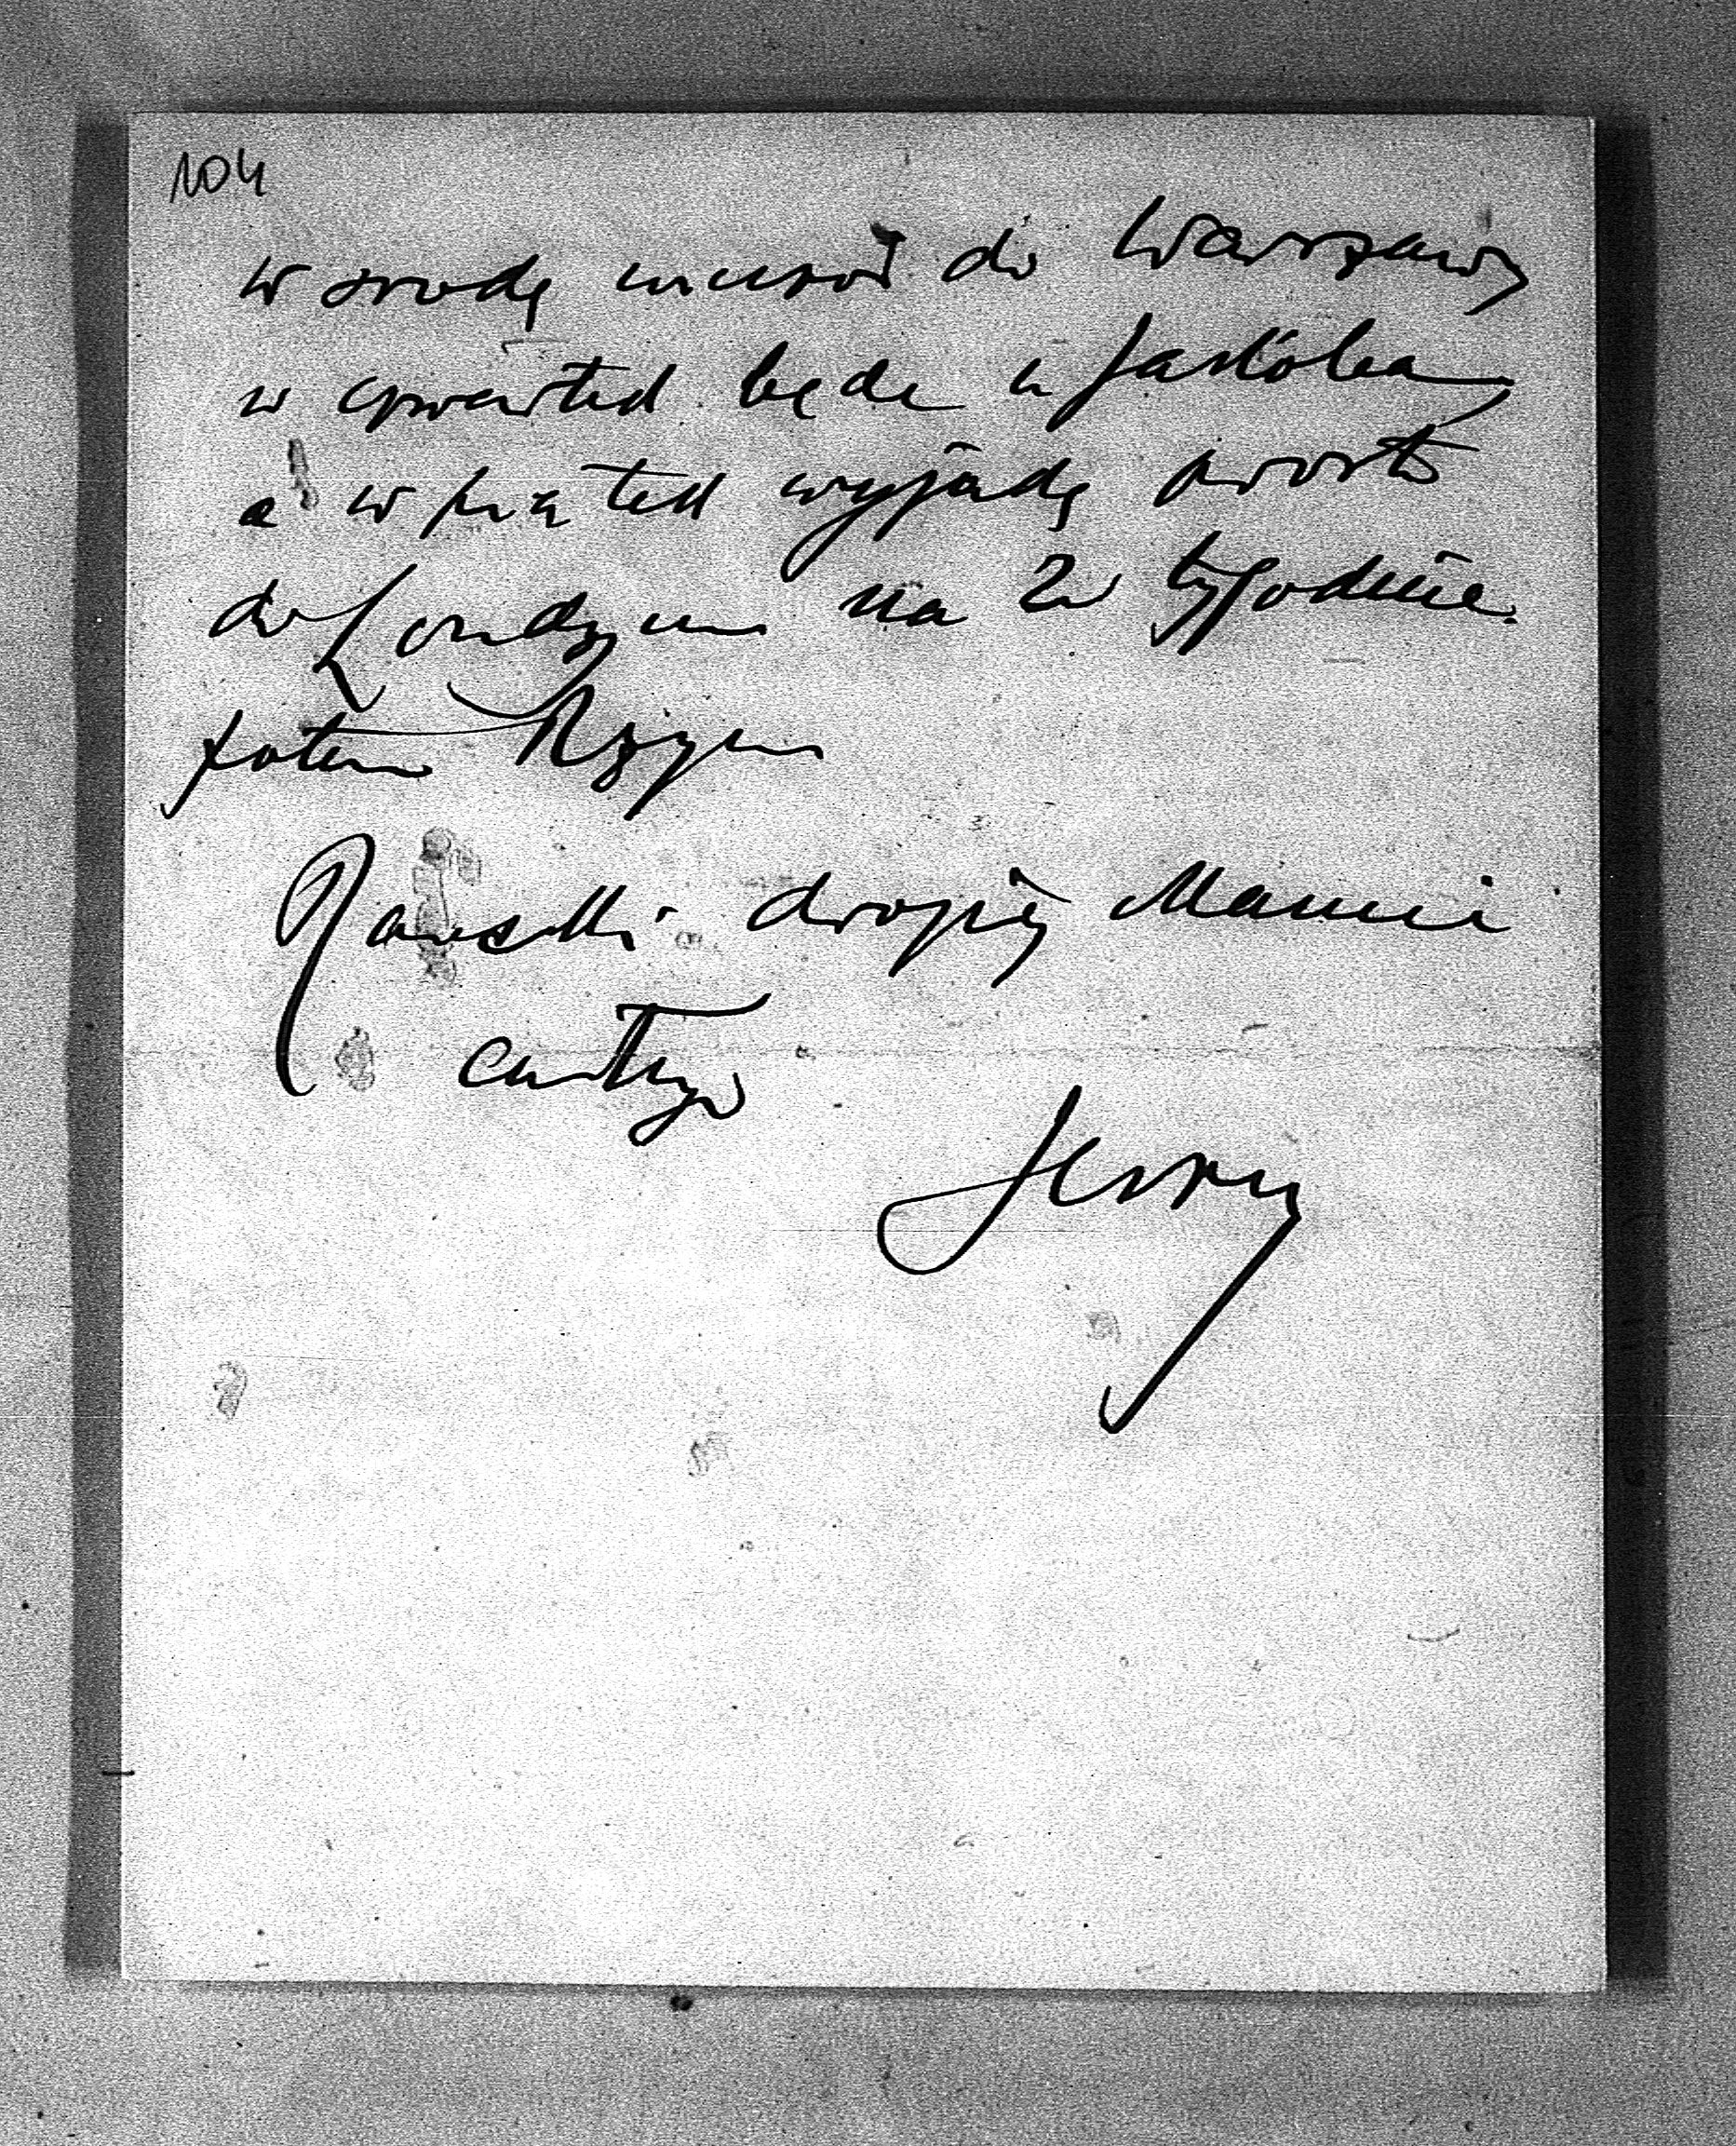 104
w srodę muszę do Warszawy
w czwartek będe u Jaskółea
a w piątek wyjadę prosto
do Londynu na 2 tygodnie.
potem Rzym
Rączki drogiej Mamci
całuję
Jerzy